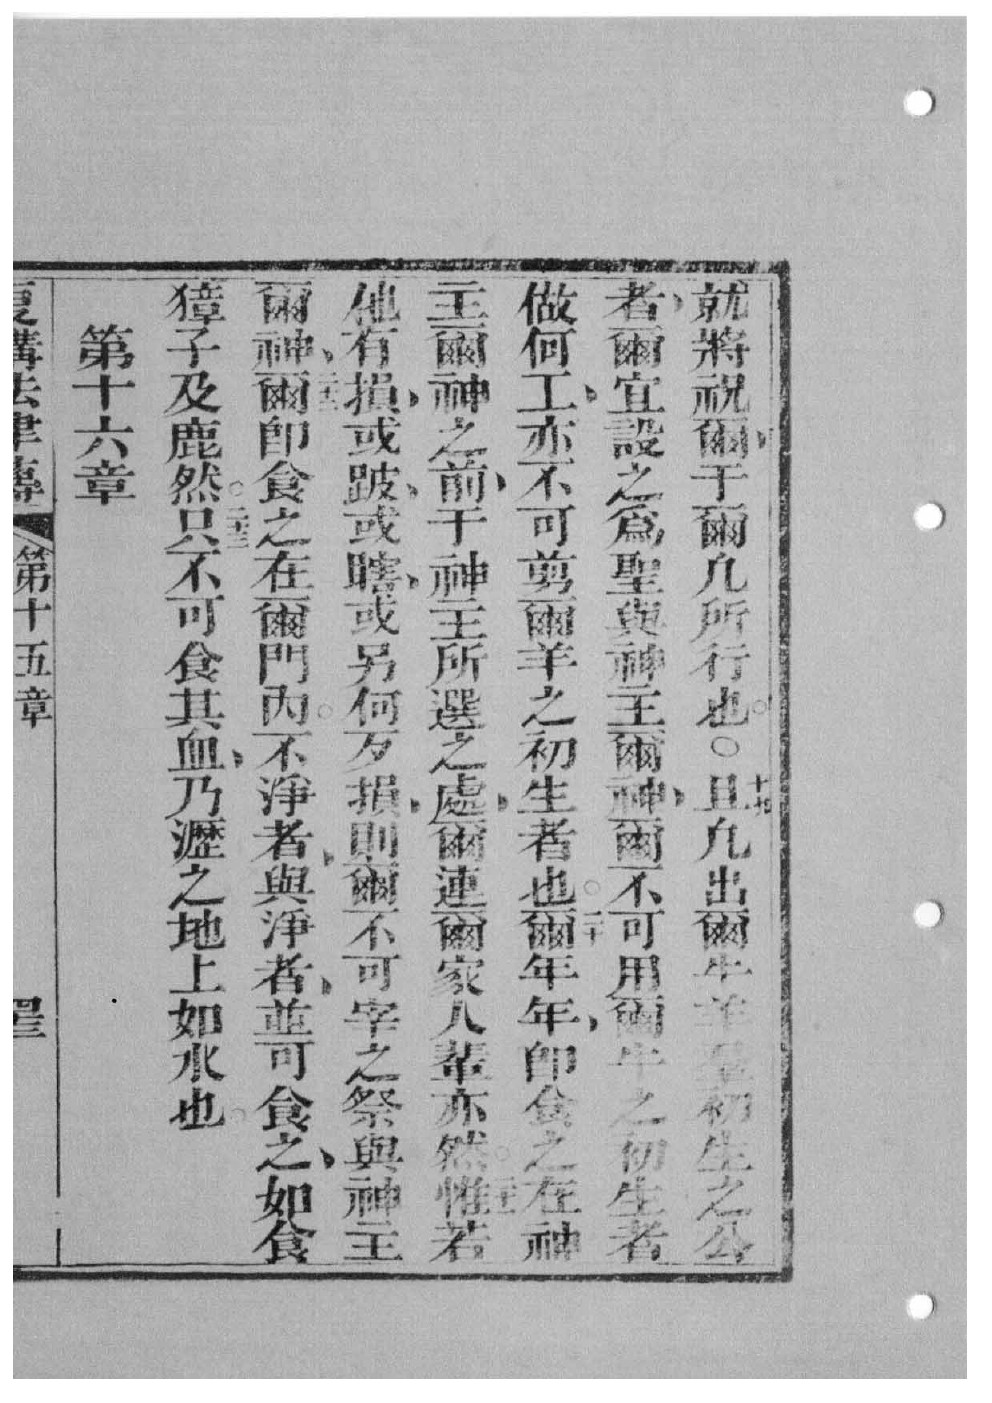 就將祝爾、于爾凡所行也。○十九且凡出爾牛羊羣初生之公
者、爾宜設之爲聖與神主爾神、爾不可用爾牛之初生者
做何工、亦不可剪爾羊之初生者也。二十爾年年、卽食之在神
主爾神之前、于神主所選之處、爾連爾家人輩亦然。二十一惟若
他有損、或跛、或瞎、或另何歹損、則爾不可宰之祭與神主
爾神、二十二爾卽食之在爾門內。不淨者、與淨者、並可食之、如食
獐子及鹿然。二十三只不可食其血、乃瀝之地上如水也。
第十六章
復講法律傳 第十五章 四十三